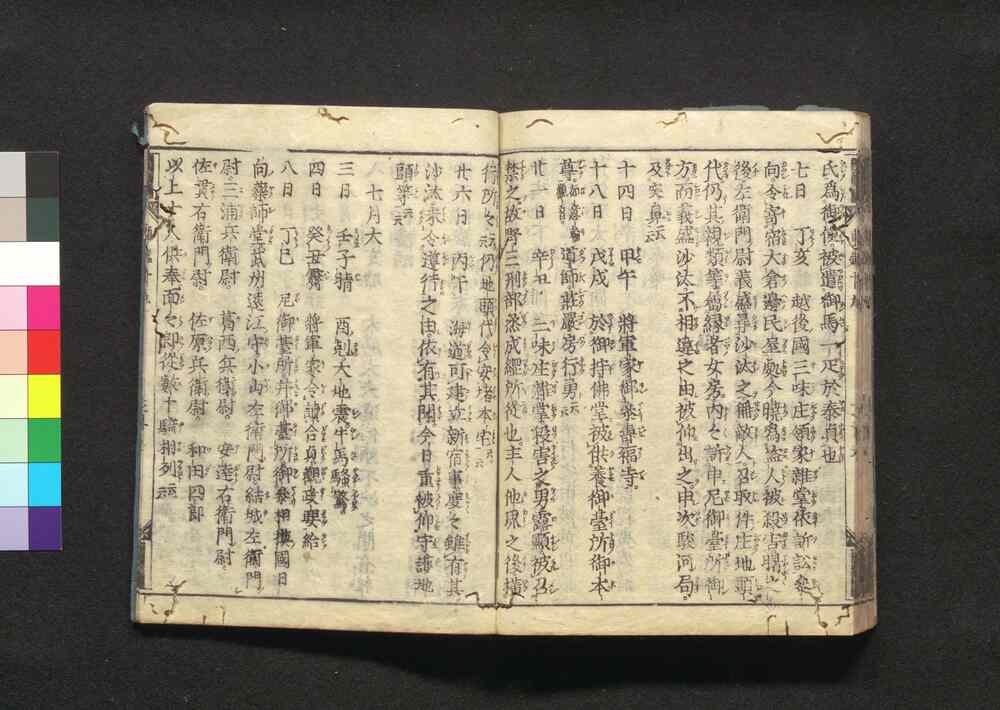 氏為御使被遣御馬一疋於泰貞也
七日　丁亥　越後國三味庄領家雜掌依訴訟参
向令寄宿大倉邊民屋処今曉為盗人被殺害曙之
後左衛門尉義盛尋沙汰之稱敵人召取件庄地頭
代仍其親類等属縁者女房内々訴申尼御臺所御
方而義盛沙汰不相違之由被仰出之申次駿河局
及突鼻云云
十四日　甲午　將軍家御参壽福寺
十八日　戊戌　於御持佛堂被供養御臺所御本
尊　導師莊嚴房行勇云云
廿一日　辛丑　三味庄雜掌殺害之男露顯被召
禁之故腎三刑部丞成綱所從也主人他界之後横
行所々云云仍地頭代令安堵本宅云云
廿六日　丙午　海道可建立新宿事度々雖有其
沙汰未令遵行之由依有其聞今日重被仰守護地
頭等云云
七月大
三日　壬子晴　酉剋大地震牛馬騷驚
四日　癸丑霽　將軍家令讀合貞觀政要給
八日　丁巳　尼御臺所并御臺所御参相摸國日
向藥師堂武州遠江守小山左衛門尉結城左衛門
尉三浦兵衛尉　葛西兵衛尉　安達右衛門尉
佐貫右衛門尉　佐原兵衛尉　和田四郎
以上十人供奉面々郎從數十騎相列云云